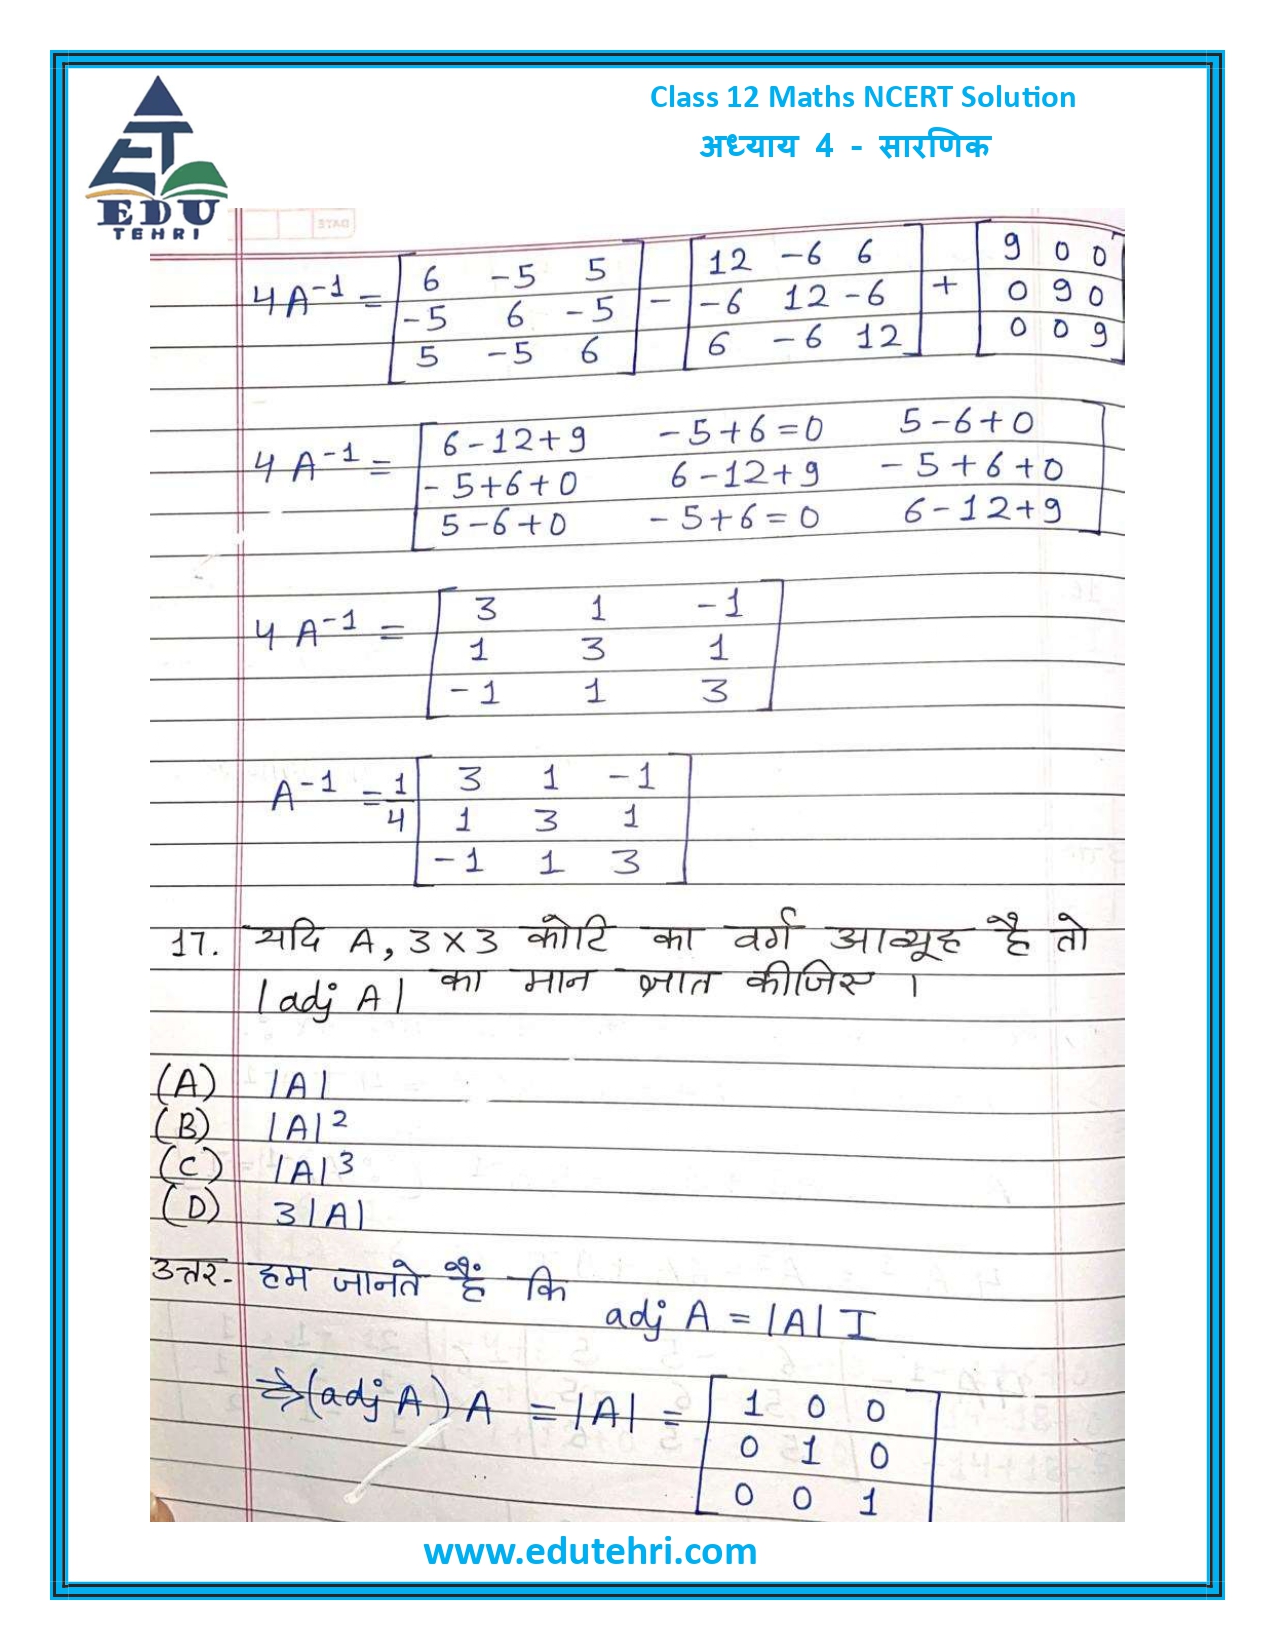 Class 12 Maths NCERT Solution
अध्याय 4 - सारणिक
EDU
TEHRI
DATE
4A⁻¹ = [6 -5 5] - [12 -6 6] + [9 0 0]
[-5 6 -5] [-6 12 -6] [0 9 0]
[5 -5 6] [6 -6 12] [0 0 9]
4A⁻¹ = [6-12+9 -5+6=0 5-6+0]
[-5+6+0 6-12+9 -5+6+0]
[5-6+0 -5+6=0 6-12+9]
4A⁻¹ = [3 1 -1]
[1 3 1]
[-1 1 3]
A⁻¹ = 1/4 [3 1 -1]
[1 3 1]
[-1 1 3]
17. यदि A, 3×3 कोटि का वर्ग आव्यूह है तो
|adj A| का मान ज्ञात कीजिए ।
(A) |A|
(B) |A|²
(C) |A|³
(D) 3|A|
उत्तर- हम जानते हैं कि
adj A = |A| I
⇒(adj A) A = |A| = [1 0 0]
[0 1 0]
[0 0 1]
www.edutehri.com